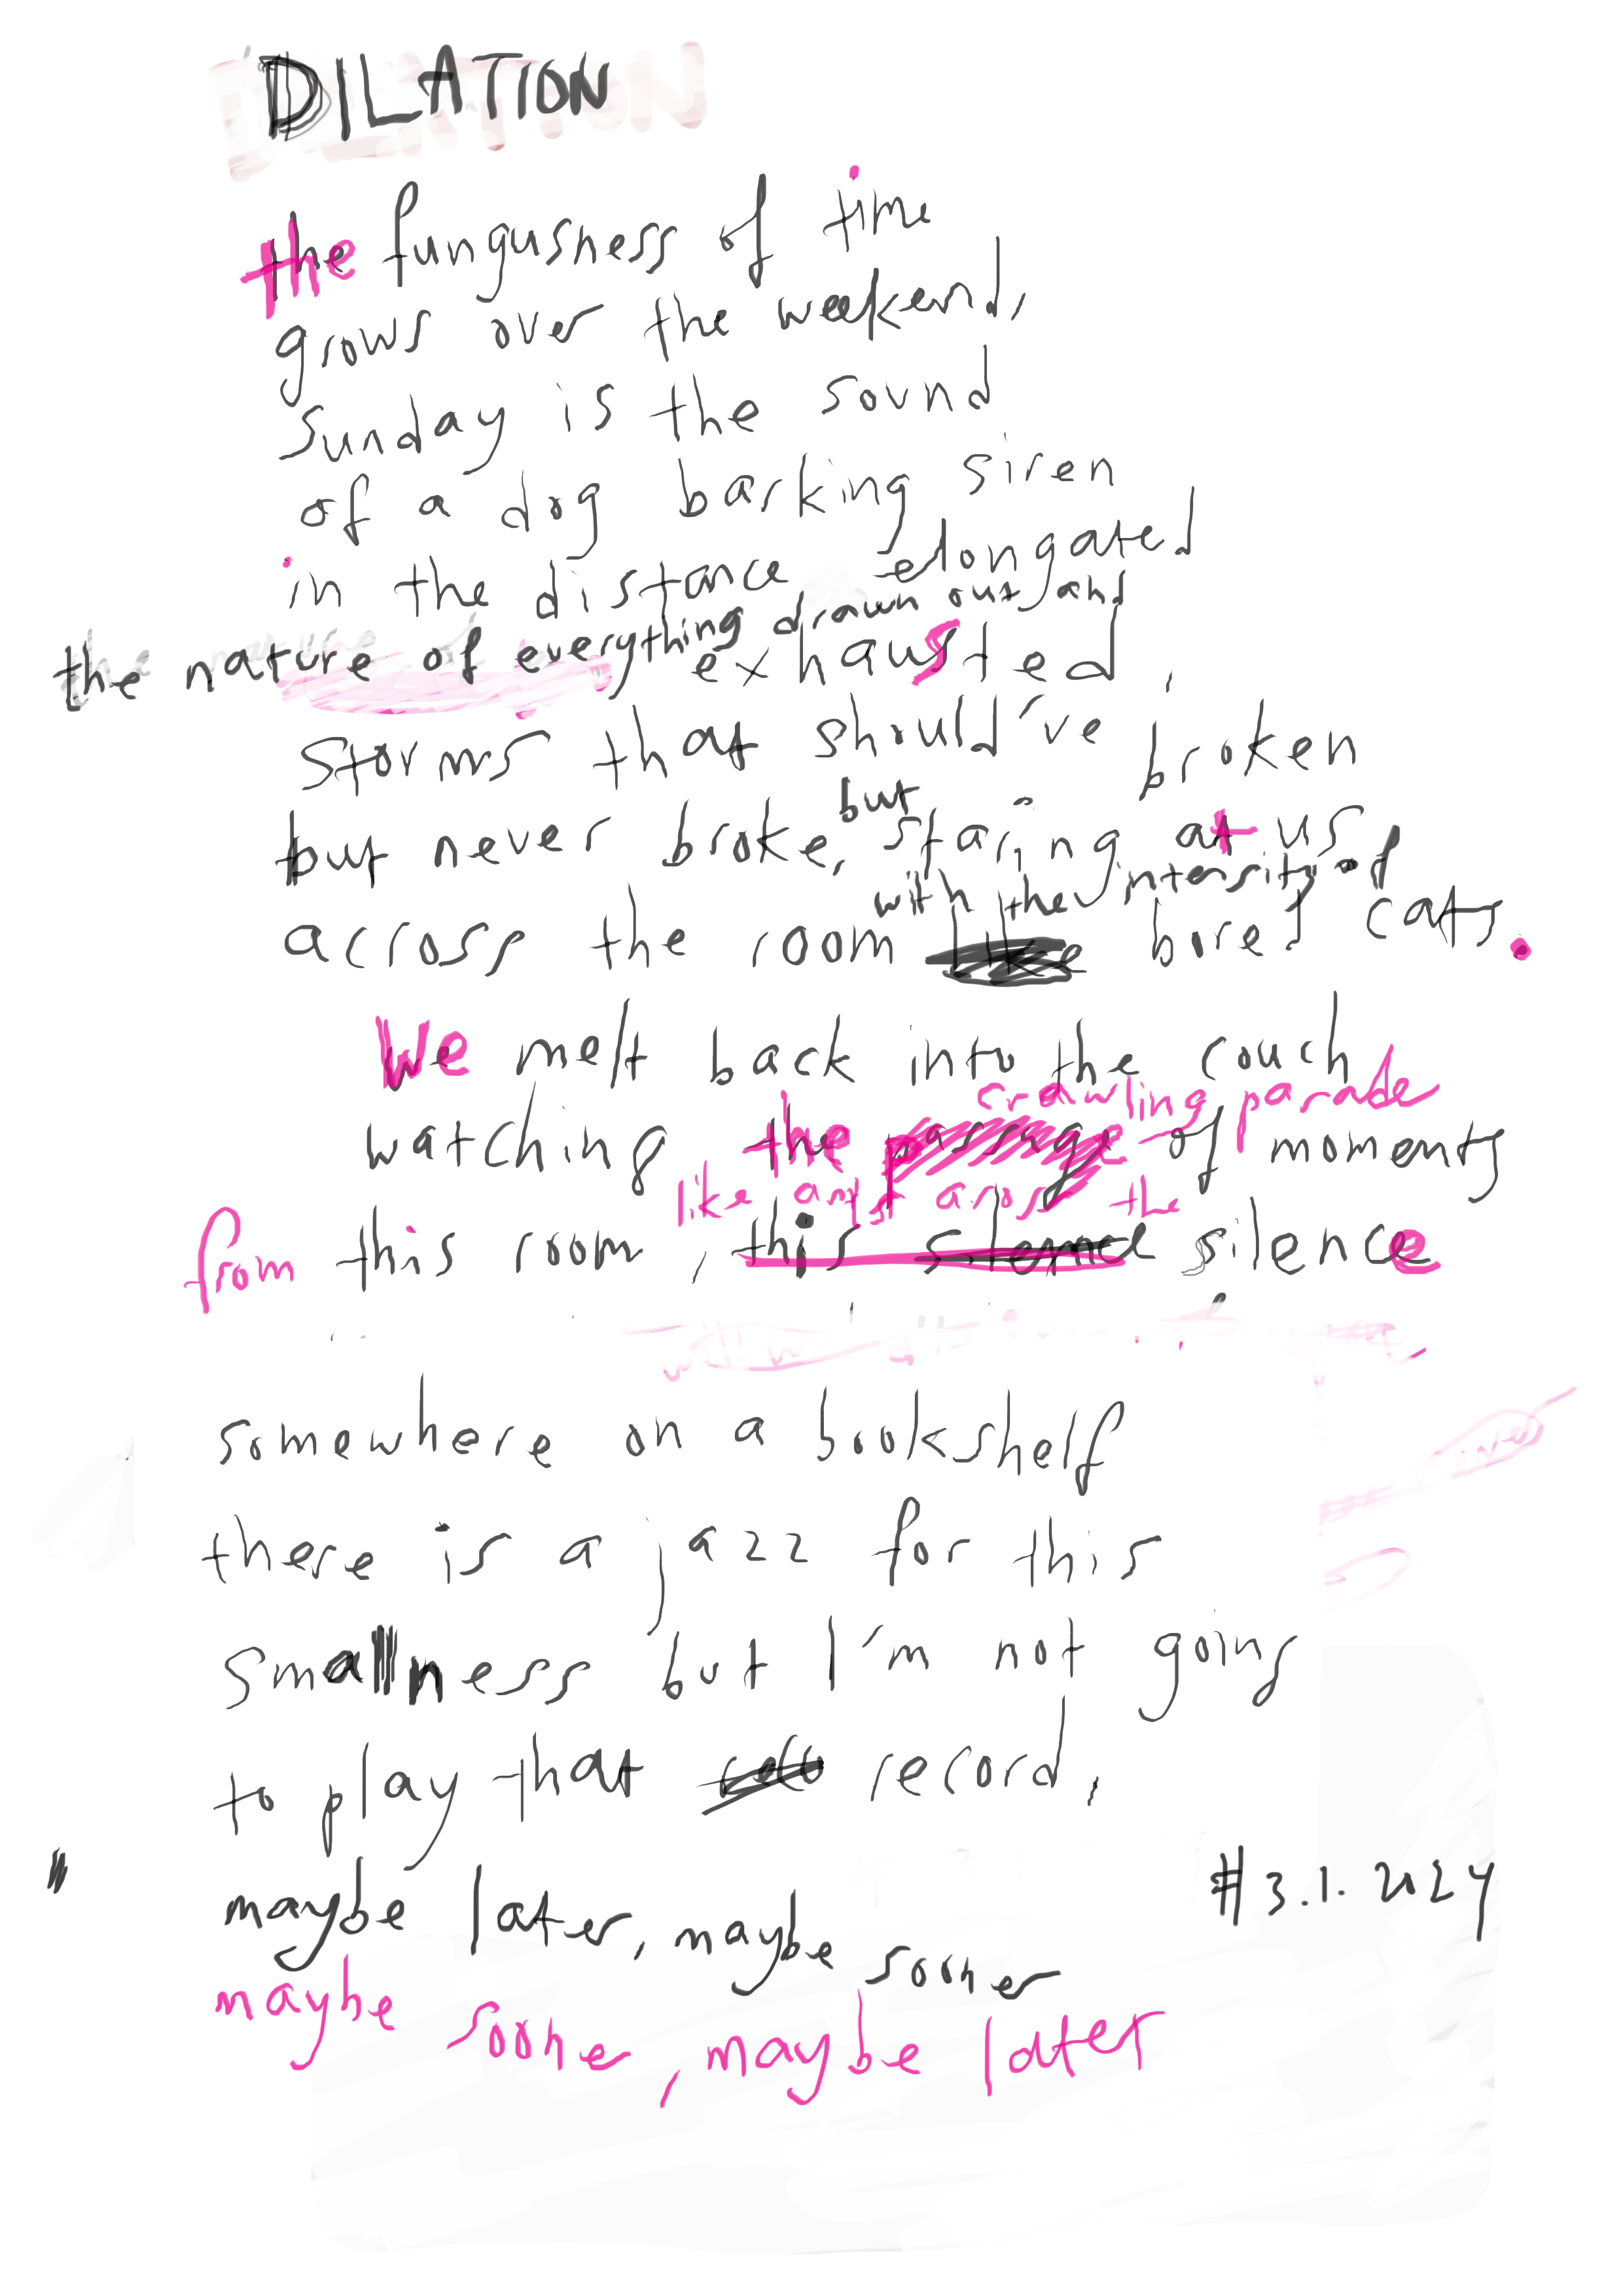 DILATION
the fungusness of time
grows over the weekend,
Sunday is the sound
of a dog barking siren
in the distance elongated
the nature of everything drawn out and
exhausted,
storms that should've broken
but never broke, but staring at us
across the room with the intensity of bored cats.
We melt back into the couch
watching the crawling parade of moments
from this room, like ants aross the silence
somewhere on a bookshelf
there is a jazz for this
smallness but I'm not going
to play that record,
maybe later, maybe sooner
#3.1.2024
maybe soone, maybe later